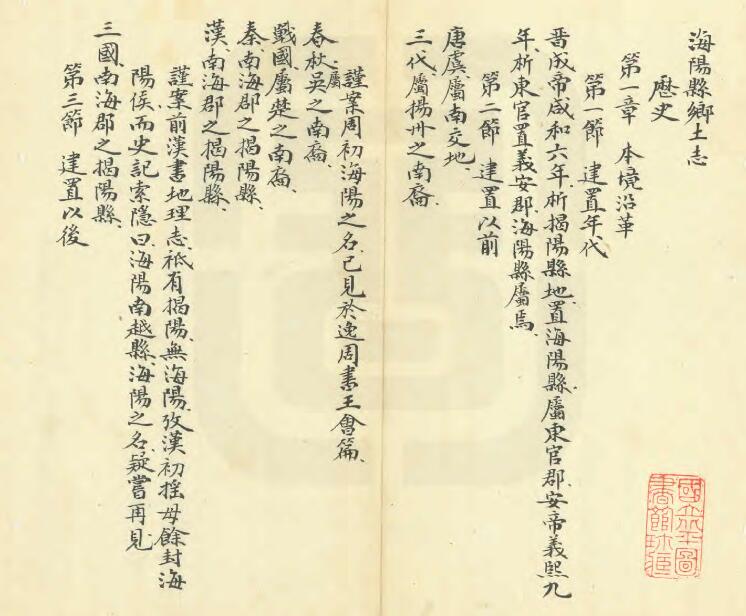 海陽縣鄉土志
歷史
第一章 本境沿革
第一節 建置年代
晋成帝咸和六年、析揭陽縣地、置海陽縣、屬東官郡、安帝義熙九
年、析東官置義安郡、海陽縣屬焉、
第二節 建置以前
唐虞屬南交地、
三代、屬揚州之南裔、
謹案周初海陽之名、已見於逸周書王會篇、
春秋屬吳之南裔、
戰國、屬楚之南裔、
秦、南海郡之揭陽縣、
漢、南海郡之揭陽縣、
謹案前漢書地理志、祗有揭陽、無海陽、攷漢初搖母餘封海
陽侯、而史記索隱曰、海陽南越縣、海陽之名、疑嘗再見
三國、南海郡之揭陽縣、
第三節 建置以後
國立中央圖
書館珍藏